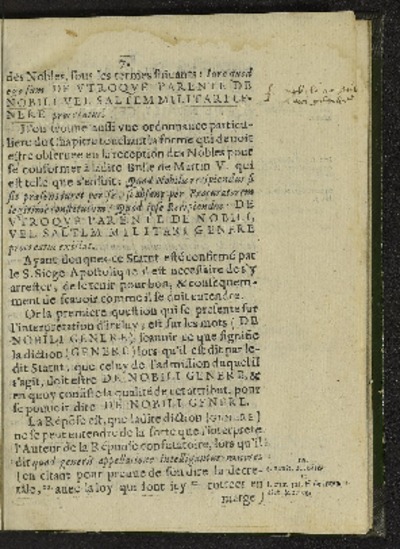 7.
des Nobles, sous les termes suivants: Iure quod
ego sum DE VTROQVE PARENTE DE
NOBILI VEL SALTEM MILITARI GE-
NERE procreatus.
L'on trouve aussi vne ordonnance particu-
liere du Chapitre touchant la forme qui devoit
estre observée en la reception des Nobles pour
se conformer à ladite Bulle de Martin V. qui
est telle que s'ensuit: Quod Nobilis recipiendus si
sit præsens iuret per se, si absens per Procuratorem
legitime constitutum: Quod ipse Recipiendus DE
VTROQVE PARENTE DE NOBILI,
VEL SALTEM MILITARI GENERE
procreatus existat.
Ayant donques ce Statut esté confirmé par
le S. Siege Apostolique il est necessaire de s'y
arrester, de le tenir pour bon, & consequem-
ment de sçavoir comme il se doit entendre.
Or la premiere question qui se presente sur
l'interpretation d'iceluy, est sur les mots (DE
NOBILI GENERE) sçauoir ce que signifie
la diction (GENERE) lors qu'il est dit par le-
dit Statut, que celuy de l'admission duquel il
s'agit, doit estre DE NOBILI GENERE, &
en quoy consiste la qualité de cet attribut, pour
se pouvoir dire DE NOBILI GENERE.
La Réponse est, que ladite diction (GENERE)
ne se peut entendre de la sorte que l'interprete
l'Auteur de la Réponse confutatoire, lors qu'il
dit quod generis appellatione intelligantur
) en citant pour preuve de son dire la decre-
tale, avec la loy qui sont icy cottées en
marge)